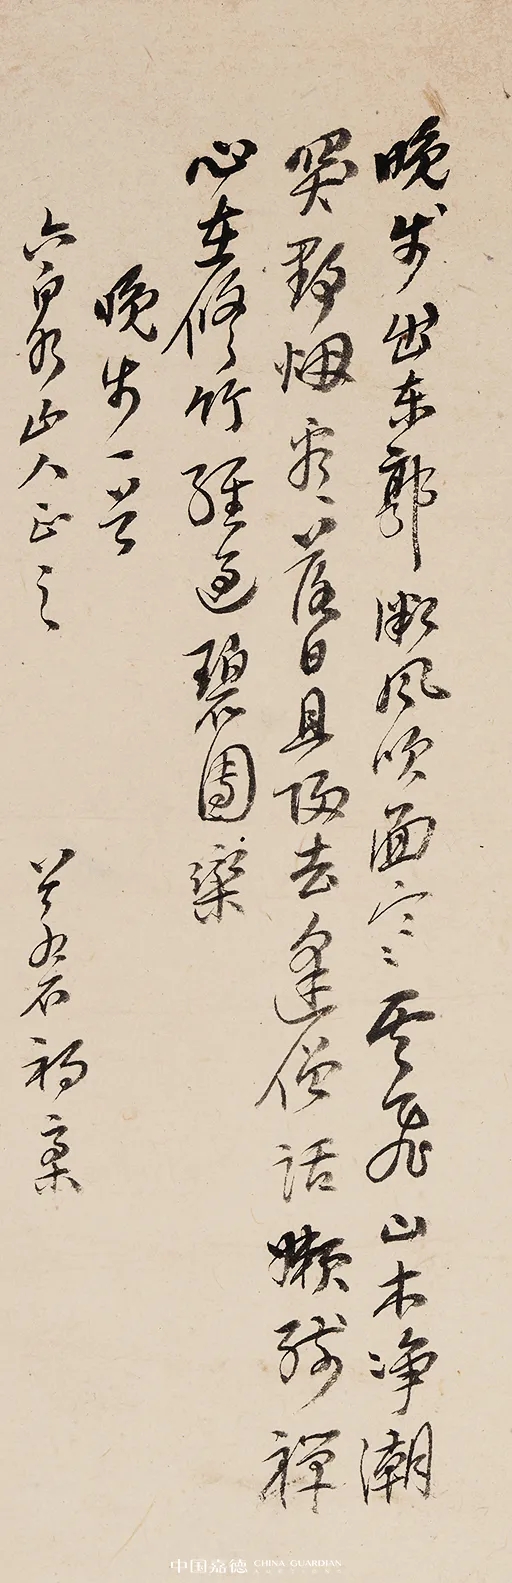 晚步出东郭渐风吹面寒云飞山木净潮
哭野烟看落日且归去逢僧话懒残禅
心在修竹经过碧团栾
晚步一首
六泉山人正之
若石初稿
中国嘉德 CHINA GUARDIAN